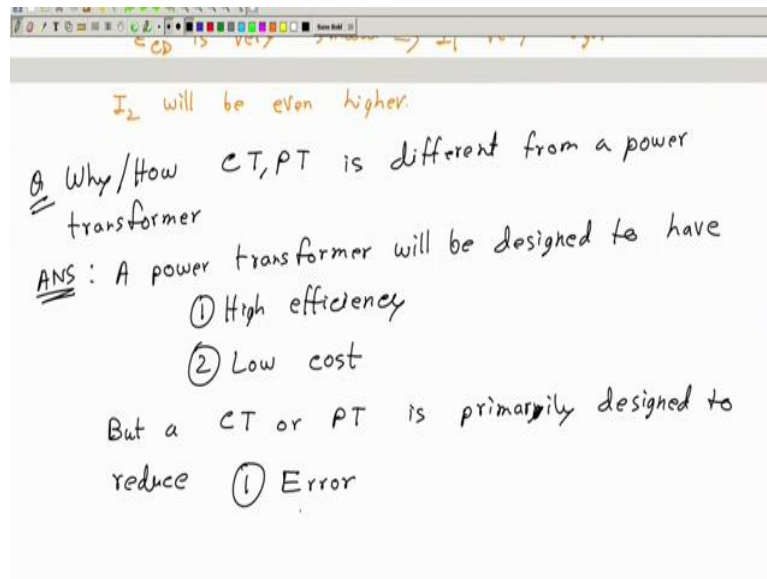 E_CD is very
I₂ will be even higher.
Q Why/How CT, PT is different from a power
transformer
ANS : A power transformer will be designed to have
① High efficiency
② Low cost
But a CT or PT is primarily designed to
reduce ① Error